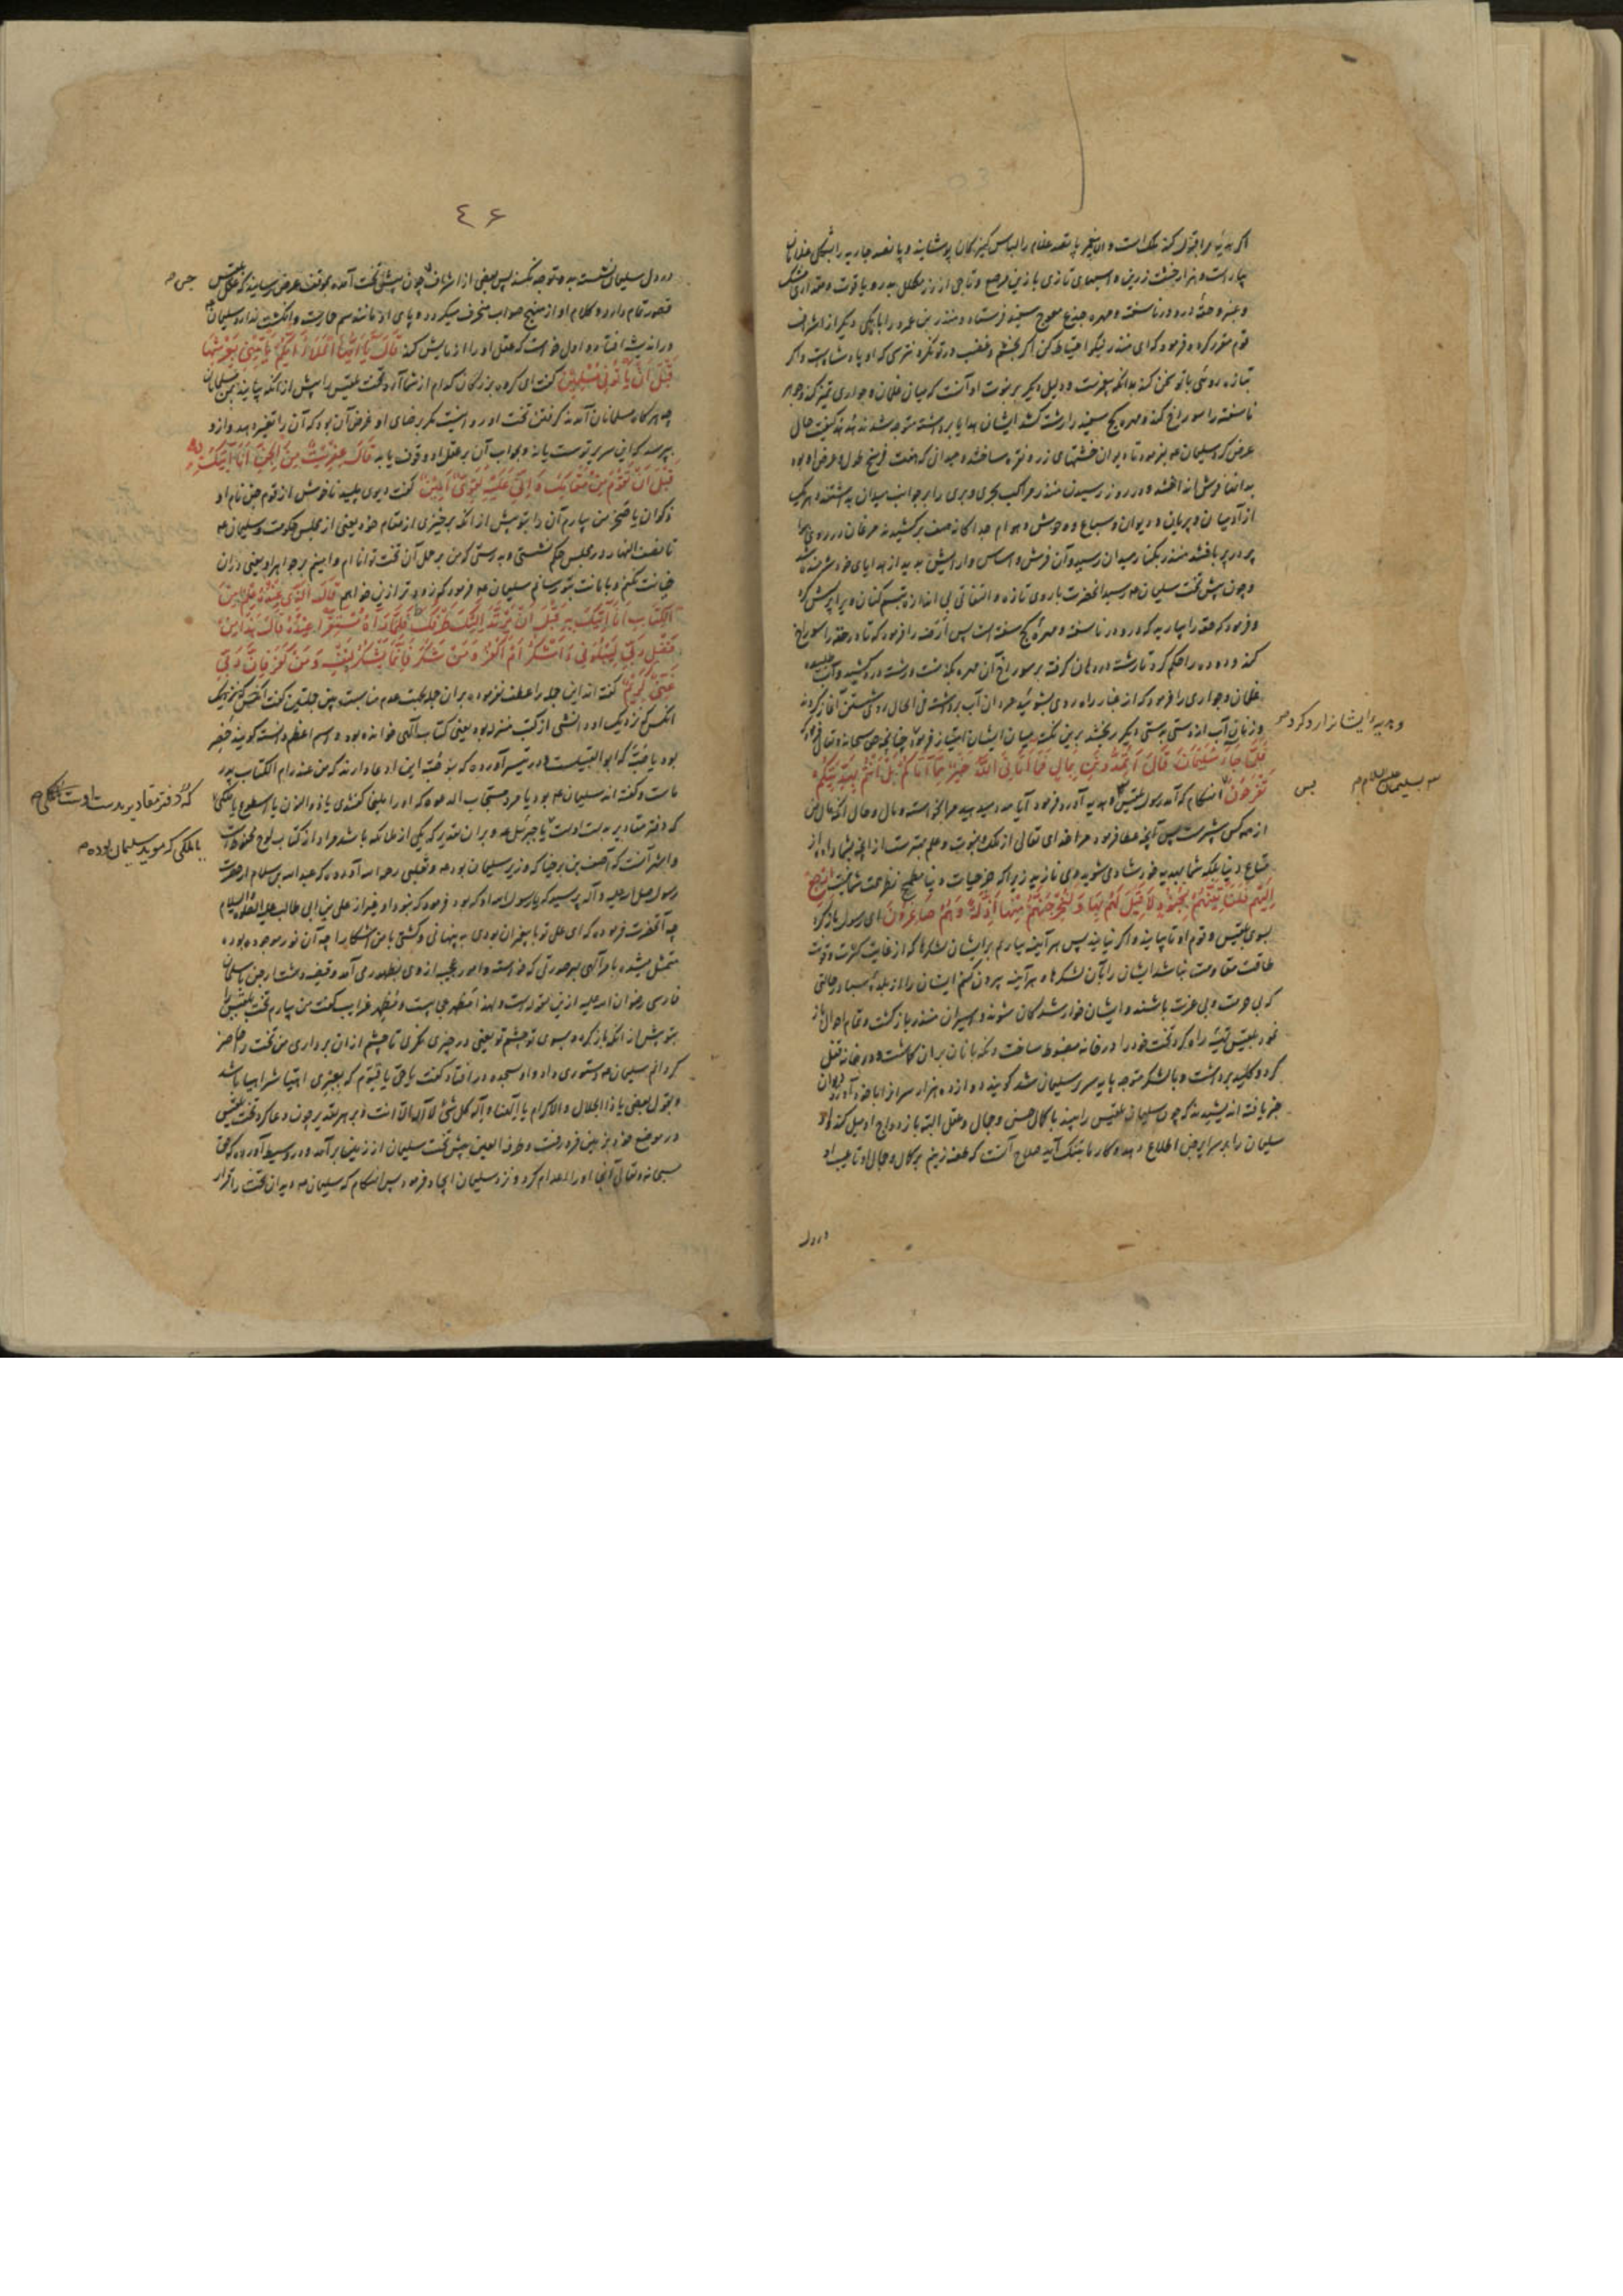 اگر هدیه مرا قبول کند ملک است و الا پیغمبر پانصد غلام را لباس کنیزکان پوشانید و پانصد جاریه را بشکل غلامان
بیاراست و هزار خشت زرین و اسبهای تازی با زین مرصع و تاجی از زر مکلل بدر و یاقوت و مقداری مشک
و عنبر و حقه درو در ناسفته و مهره جزع معوج سفته فرستاد و منذر بن عمرو را با یکی دیگر از اشراف
قوم مقرر کرد و فرمود که ای منذر نیکو احتیاط کن اگر بخشم و غضب در تو نگرد نترسی که او پادشاه است و اگر
بتازه روئی با تو سخن کند بدانکه پیغمبرست و دلیل دیگر بر نبوت او آنست که میان غلمان و جواری تمیز کند و جوهر
ناسفته را سوراخ کند و مهره کج سفته را رشته کشد ایشان هدایا برداشته متوجه شدند هدهد کیفیت حال
عرض کرد سلیمان بفرمود تا دیوان خشتهای زر و نقره ساختند و میدانی که هفت فرسخ طول و عرض او بود
بدانها فرش انداختند و در روز رسیدن منذر مراکب بحری و بری را بر جوانب میدان بداشتند و هر یک
از آدمیان و پریان و دیوان و سباع و وحوش و هوام جداگانه صف برکشیدند مرغان در روی هوا
پر در پر بافتند منذر بکنار میدان رسید و آن فرش و اساس و آرایش بدید از هدایای خود شرمنده شد
و چون پیش تخت سلیمان رسید آنحضرت با روی تازه و التفاتی بی اندازه تبسم کنان ویرا پرسش کرد
و فرمود که حقه را بیارید که درو در ناسفته و مهره کج سفته است پس ارضه را فرمود که تا در حقه را سوراخ
کند و دوده را حکم کرد تا رشته در دهان گرفته بر سوراخ آن مهره کج سفته رشته در کشید و آب طلبیده
غلمان و جواری را فرمود که از غبار راه روی بشوئید مردان آب برداشته فی الحال روی شستن آغاز کردند
و زنان آب از دستی بدستی دیگر ریختند بدین نکته میان ایشان امتیاز فرمود چنانچه حق سبحانه و تعالی فرمود که
و هدیه را ایشانرا رد کرد
فَلَمَّا جَاءَ سُلَيْمَانَ قَالَ أَتُمِدُّونَنِ بِمَالٍ فَمَا آتَانِيَ اللَّهُ خَيْرٌ مِمَّا آتَاكُمْ بَلْ أَنْتُمْ بِهَدِيَّتِكُمْ
تَفْرَحُونَ آن هنگام که آمد رسول بلقیس و هدیه آورد فرمود آیا مدد میدهید مرا بخواسته و مال و حال آنکه مال من
سلیمان علیه السلام
پس
از همه کس بیشترست پس آنچه عطا فرمود مرا خدای تعالی از ملک و نبوت و علم بهترست از آنچه بشما داده از
متاع دنیا بلکه شما بهدیه خود شادی میشوید و می نازید زیرا که جز حیات دنیا مطمح نظر همت شما نیست ارْجِعْ
إِلَيْهِمْ فَلَنَأْتِيَنَّهُمْ بِجُنُودٍ لَا قِبَلَ لَهُمْ بِهَا وَلَنُخْرِجَنَّهُمْ مِنْهَا أَذِلَّةً وَهُمْ صَاغِرُونَ ای رسول باز گرد
بسوی بلقیس و قوم او تا بیایند و اگر نیایند پس هر آینه بیاریم بر ایشان لشکرها که از غایت کثرت و قوت
طاقت مقاومت نباشد ایشان را بآن لشکرها و هر آینه بیرون کنم ایشان را از بلده سبا در حالتی
که بی حرمت و بی عزت باشند و ایشان خوار شدگان شوند و اسیران منذر بازگشت و تمام احوال باز
نمود بلقیس تهیه راه کرد و تخت خود را در خانه مضبوط ساخت و نگهبانان بران گماشت و در خانه قفل
کرد و کلید برداشت و با لشکر متوجه پایه سریر سلیمان شد گویند دوازده هزار سرافراز با خود آورد دیوان
خبر یافته اندیشیدند که چون سلیمان بلقیس را بیند با کمال حسن و جمال و عقل البته بازدواج او میل کند و او
سلیمان را بر سرایر جن اطلاع دهد و کار ما بتنگ آید صلاح آنست که طعنه زنیم بر کمال و جمال او تا عیب او
در دل
٤۶
در دل سلیمان نشسته بدو متوجه نگردد پس بعضی از اشراف جن پیش تخت آمده بموقف عرض رسانیدند که عقل بلقیس
جن
قصور تمام دارد و کلام او از منهج صواب منحرف میگردد و پای او مانند سم حمارست و انگشت ندارد سلیمان
در اندیشه افتاد و اول خواست که عقل او را آزمایش کند قَالَ يَا أَيُّهَا الْمَلَأُ أَيُّكُمْ يَأْتِينِي بِعَرْشِهَا
قَبْلَ أَنْ يَأْتُونِي مُسْلِمِينَ گفت ای گروه بزرگان کدام از شما آرد تخت بلقیس را پیش از آنکه بیایند بمن مسلمانان
چه هرگاه مسلمانان آمدند گرفتن تخت او روا نیست مگر برضای او و غرض آن بود که آن را تغییر دهد و ازو
بپرسد که این سریر توست یا نه و بجواب آن بر عقل او وقوف یابد قَالَ عِفْرِيتٌ مِنَ الْجِنِّ أَنَا آتِيكَ بِهِ
قَبْلَ أَنْ تَقُومَ مِنْ مَقَامِكَ وَإِنِّي عَلَيْهِ لَقَوِيٌّ أَمِينٌ گفت دیوی پلید ناخوش از قوم جن نام او
ذکوان یا صخر من بیارم آن را بتو پیش از آنکه برخیزی از مقام خود یعنی از مجلس حکومت و سلیمان
تا نصف النهار در مجلس حکم نشستی و بدرستی که من بر حمل آن تخت توانا ام و امینم بر جواهر او یعنی دران
خیانت نکنم و بامانت بتو رسانم سلیمان فرمود که زودتر ازین خواهم قَالَ الَّذِي عِنْدَهُ عِلْمٌ مِنَ
الْكِتَابِ أَنَا آتِيكَ بِهِ قَبْلَ أَنْ يَرْتَدَّ إِلَيْكَ طَرْفُكَ فَلَمَّا رَآهُ مُسْتَقِرًّا عِنْدَهُ قَالَ هَذَا مِنْ
فَضْلِ رَبِّي لِيَبْلُوَنِي أَأَشْكُرُ أَمْ أَكْفُرُ وَمَنْ شَكَرَ فَإِنَّمَا يَشْكُرُ لِنَفْسِهِ وَمَنْ كَفَرَ فَإِنَّ رَبِّي
غَنِيٌّ كَرِيمٌ گفته اند این جمله را عطف نفرمود بران جمله بجهت عدم مناسبت بین جملتین گفت آنکس که نزدیک
آنکس که نزدیک او دانشی از کتب منزله بود یعنی کتاب الهی خوانده بود و اسم اعظم دانسته گویند خضر
که دفتر مقادیر بدست اوست
یا ملکی که موید سلیمان بوده
که دفتر مقادیر بدست اوست یا جبرئیل و بران تقدیر که یکی از ملائکه باشد مراد از کتاب لوح محفوظ است
و اشهر آنست که آصف بن برخیا که وزیر سلیمان بود و ثعلبی رحمه الله آورده که عبد الله بن سلام از حضرت
رسول صلی الله علیه و آله پرسید که یا رسول الله او که بود فرمود که نبود او غیر از علی بن ابی طالب علیه السلام
چه آنحضرت فرموده که ای علی تو با پیغمبران بودی به پنهانی و گشتی با من آشکارا چه آن نور موجود بوده
متمثل میشد بامر الهی بهر صورتی که خواسته و امور عجیبه از وی بظهور می آمد
فارسی رضوان الله علیه ازین مقوله است و لهذا مظهر عجایب است و مُظهر غرایب گفت من بیارم تخت بلقیس را
بتو پیش از آنکه باز گردد بسوی تو چشم تو یعنی در چیزی نگری تا چشم از ان برداری من تخت را حاضر
گردانم سلیمان دستوری داد و او بسجده در افتاد و گفت یا حی یا قیوم که بعبری اهیا شراهیا باشد
و بقول بعضی یا ذا الجلال و الاکرام یا الهنا و اله کل شئ لا اله الا انت و بر هر تقدیر چون دعا کرد تخت بلقیس
در موضع خود بزمین فرو رفت و طرفة العین پیش تخت سلیمان از زمین برآمد و در وسیط آورده که حق
سبحانه و تعالی آنجا او را اعدام کرد و نزد سلیمان ایجاد فرمود پس آن هنگام که سلیمان دید آن تخت را قرار